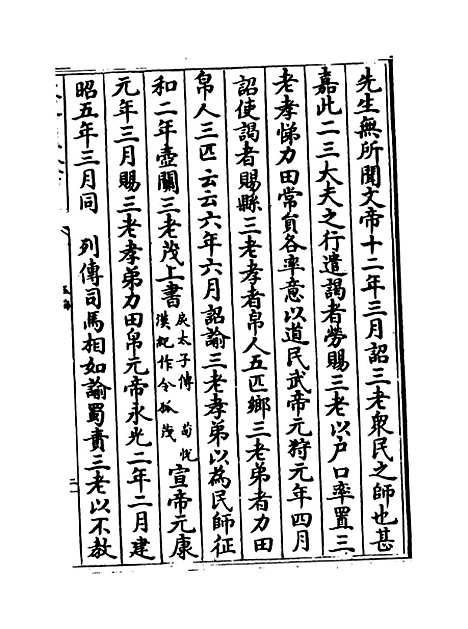 先生無所聞文帝十二年三月詔三老衆民之師也甚
嘉此二三大夫之行遣謁者勞賜三老以户口率置三
老孝悌力田常員各率意以道民武帝元狩元年四月
詔使謁者賜縣三老孝者帛人五匹鄉三老弟者力田
帛人三匹云云六年六月詔諭三老孝弟以為民師征
和二年壺關三老茂上書戾太子傳荀悦漢紀作令狐茂宣帝元康
元年三月賜三老孝弟力田帛元帝永光二年二月建
昭五年三月同 列傳司馬相如諭蜀責三老以不教